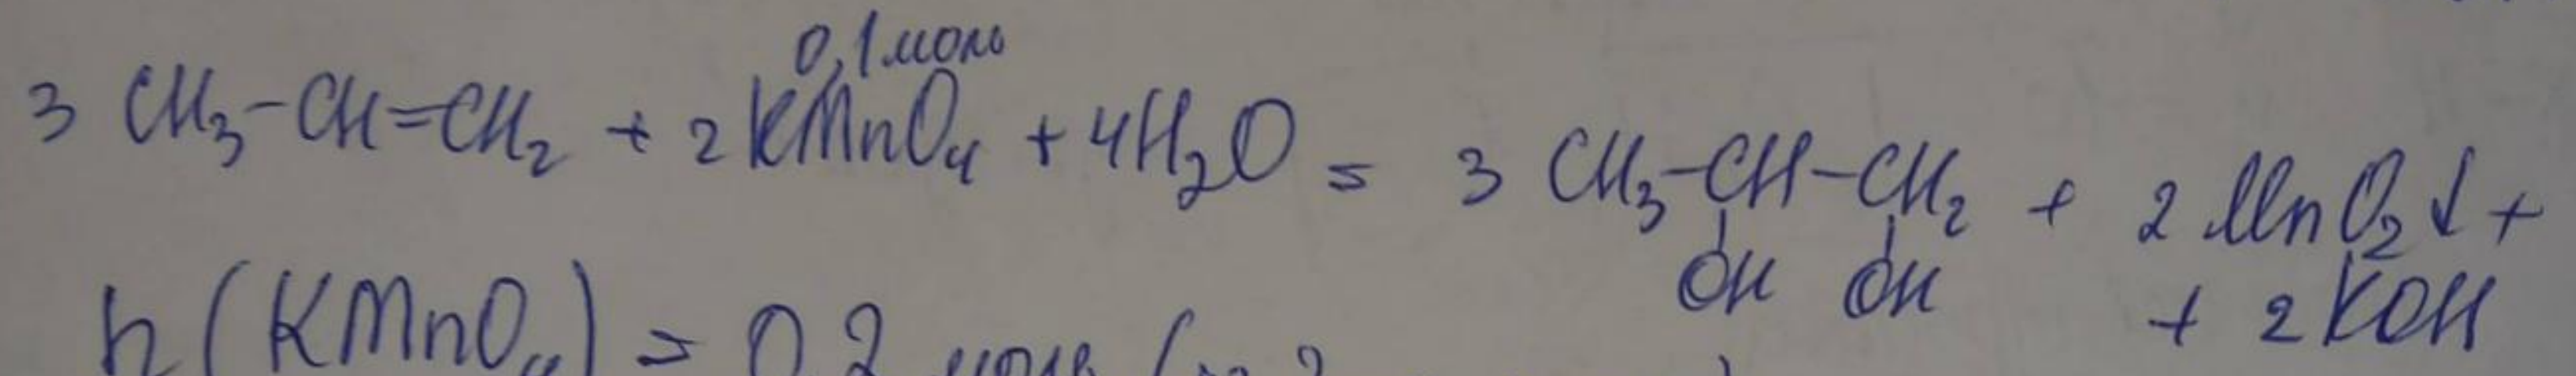 0,1 моль
3 CH₃-CH=CH₂ + 2 KMnO₄ + 4H₂O = 3 CH₃-CH-CH₂ + 2 MnO₂↓ +
OH OH
+ 2 KOH
n (KMnO₄) = 0,2 моль